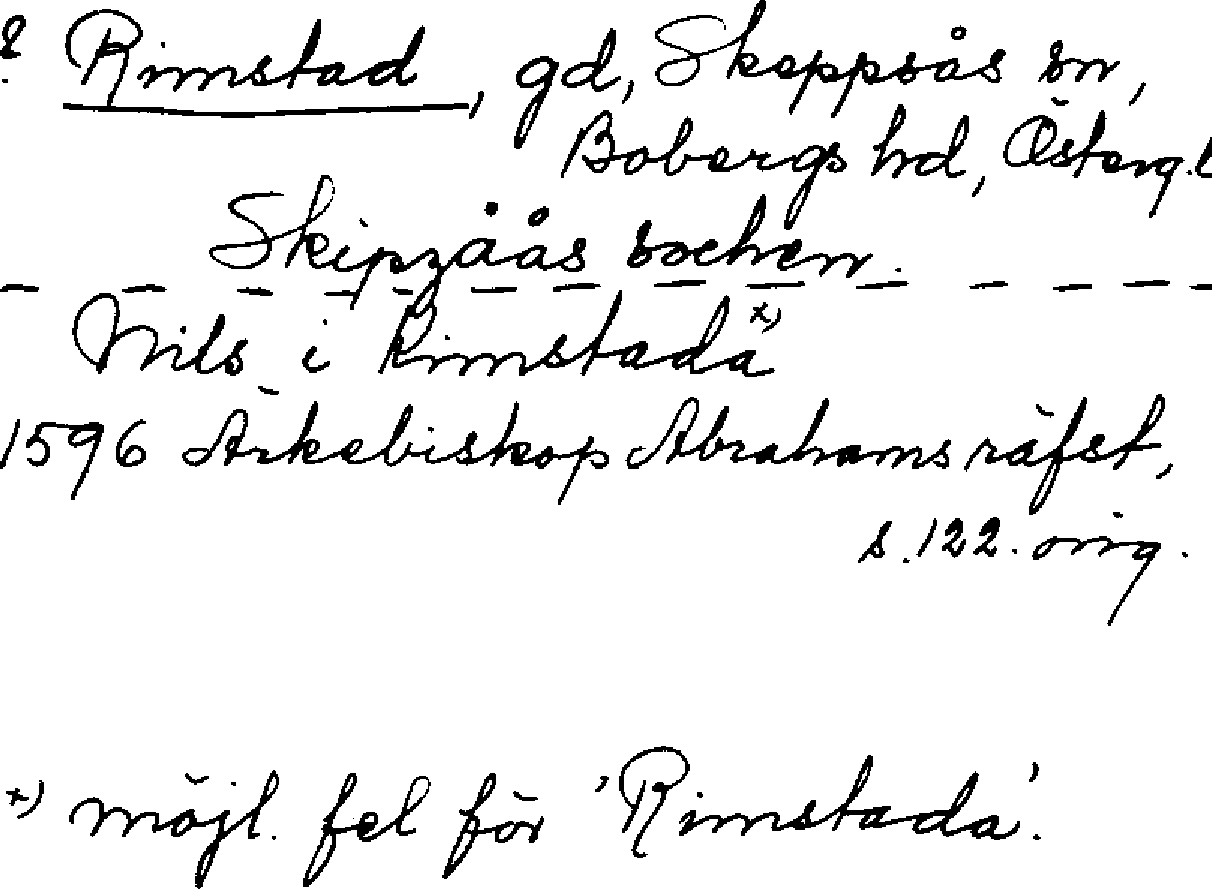 ? Rimstad, gd, Skeppsås sn,
Bobergs hd, Östergl
Skipzåås sochen.
Nils i kimstada x)
1596 Ärkebiskop Abrahams räfst,
s. 122. orig.
x) möjl. fel för 'Rimstada'.